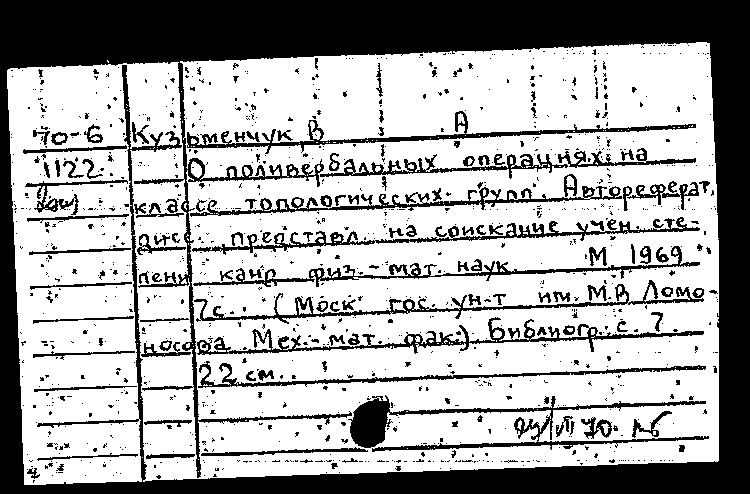 70-6 Кузьменчук В А
1122 О поливербальных операциях на
классе топологических групп. Автореферат
дисс. представл. на соискание учен. сте-
пени канд физ.-мат. наук. М. 1969
7с. (Моск гос. ун-т им. М.В Ломо-
носова Мех.-мат. фак.) Библиогр. с. 7.
22 см.
70